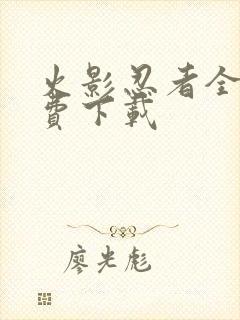 火影忍者全
費下載
廖光彪